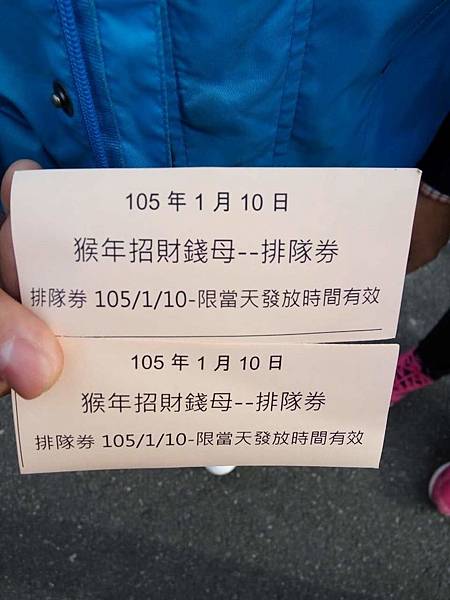 105 年 1 月 10 日
猴年招財錢母--排隊券
排隊券 105/1/10-限當天發放時間有效
105 年 1 月 10 日
猴年招財錢母--排隊券
排隊券 105/1/10-限當天發放時間有效